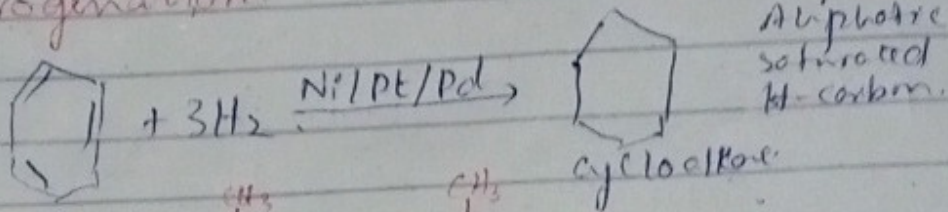 + 3H₂ Ni/Pt/Pd
Aliphatic
saturated
H-carbon.
cycloalkane
CH₃ CH₃